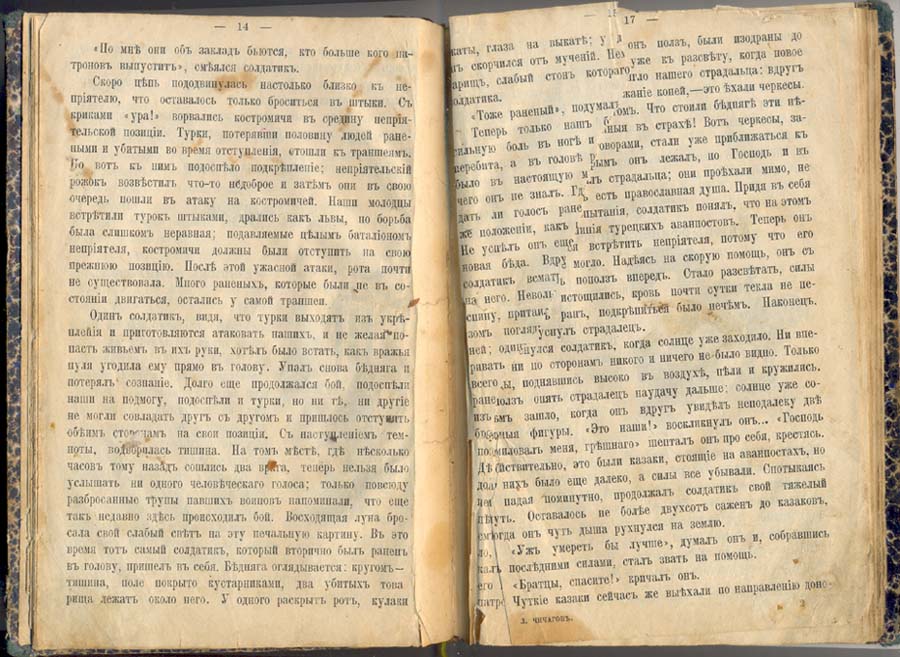 — 14 —
«По мнѣ они объ закладъ бьются, кто больше кого па-
троновъ выпустить», смѣялся солдатикъ.
Скоро цѣпь пододвинулась настолько близко къ не-
пріятелю, что оставалось только броситься въ штыки. Съ
криками «ура!» ворвались костромичи въ средину непрія-
тельской позиціи. Турки, потерявши половину людей ране-
ными и убитыми во время отступленія, отошли къ траншеямъ.
Но вотъ къ нимъ подоспѣло подкрѣпленіе; непріятельскій
рожокъ возвѣстилъ что-то недоброе и затѣмъ они въ свою
очередь пошли въ атаку на костромичей. Наши молодцы
встрѣтили турокъ штыками, дрались какъ львы, но борьба
была слишкомъ неравная; подавляемые цѣлымъ баталіономъ
непріятеля, костромичи должны были отступить на свою
прежнюю позицію. Послѣ этой ужасной атаки, рота почти
не существовала. Много раненыхъ, которые были не въ со-
стояніи двигаться, остались у самой траншеи.
Одинъ солдатикъ, видя, что турки выходятъ изъ укрѣ-
пленія и приготовляются атаковать нашихъ, и не желая по-
пасть живьемъ въ ихъ руки, хотѣлъ было встать, какъ вражья
пуля угодила ему прямо въ голову. Упалъ снова бѣдняга и
потерялъ сознаніе. Долго еще продолжался бой, подоспѣли
наши на подмогу, подоспѣли и турки, но ни тѣ, ни другіе
не могли совладать другъ съ другомъ и пришлось отступить
обѣимъ сторонамъ на свои позиціи. Съ наступленіемъ тем-
ноты, водворилась тишина. На томъ мѣстѣ, гдѣ нѣсколько
часовъ тому назадъ сошлись два врага, теперь нельзя было
услышать ни одного человѣческаго голоса; только повсюду
разбросанные трупы павшихъ воиновъ напоминали, что еще
такъ недавно здѣсь происходилъ бой. Восходящая луна бро-
сала свой слабый свѣтъ на эту печальную картину. Въ это
время тотъ самый солдатикъ, который вторично былъ раненъ
въ голову, пришелъ въ себя. Бѣдняга оглядывается: кругомъ—
тишина, поле покрыто кустарниками, два убитыхъ това
рища лежатъ около него. У одного раскрытъ ротъ, кулаки
17 —
жаты, глаза на выкатѣ; у онъ ползъ, были изодраны до
скорчился отъ мученій. уже къ разсвѣту, когда новое
арищъ, слабый стонъ котораго нашего страдальца: вдругъ
олдатика. жаніе коней,—это ѣхали черкесы.
«Тоже раненый», подумалъ Что стоили бѣднягѣ эти нѣ-
Теперь только нашъ въ страхѣ! Вотъ черкесы, за-
сильную боль въ ногѣ и оворами, стали уже приближаться къ
перебита, а въ головѣ рымъ онъ лежалъ, но Господь и въ
было въ настоящую страдальца; они проѣхали мимо, не
чего онъ не зналъ. есть православная душа. Придя въ себя
дать ли голосъ ране пытанія, солдатикъ понялъ, что на этомъ
же положеніи, какъ турецкихъ аванпостовъ. Теперь онъ
Не успѣлъ онъ еще встрѣтить непріятеля, потому что его
новая бѣда. Вдру могло. Надѣясь на скорую помощь, онъ съ
солдатикъ всмат поползъ впередъ. Стало разсвѣтать, силы
на него. Неволь истощились, кровь почти сутки текла не пе-
спину, притаи ранъ, подкрѣпиться было нечѣмъ. Наконецъ.
зомъ погляд уснулъ страдалецъ.
ней; один нулся солдатикъ, когда солнце уже заходило. Ни впе-
ривать ни по сторонамъ никого и ничего не было видно. Только
всего ы, поднявшись высоко въ воздухѣ, пѣли и кружились.
ране олзъ опять страдалецъ наудачу дальше: солнце уже со-
изъ мъ зашло, когда онъ вдругъ увидѣлъ неподалеку двѣ
фигуры. «Это наши!» воскликнулъ онъ... «Господь
миловалъ меня, грѣшнаго» шепталъ онъ про себя, крестясь.
Дѣ ствительно, это были казаки, стоящіе на аванпостахъ, но
до нихъ было еще далеко, а силы все убывали. Спотыкаясь
падая поминутно, продолжалъ солдатикъ свой тяжелый
путь. Оставалось не болѣе двухсотъ саженъ до казаковъ,
огда онъ чуть дыша рухнулся на землю.
ло, «Ужъ умереть бы лучше», думалъ онъ и, собравшись
калъ послѣдними силами, сталъ звать на помощь.
его «Братцы, спасите!» кричалъ онъ.
патро Чуткіе казаки сейчасъ же выѣхали по направленію доно-
Л. ЧИЧАГОВЪ. 2